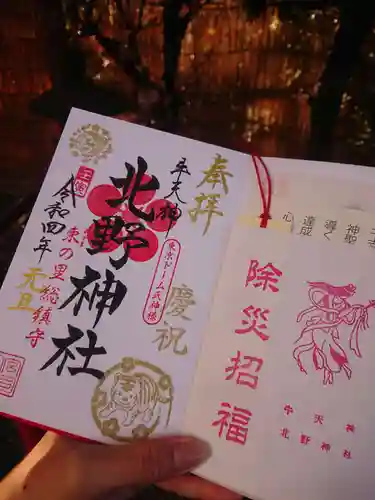 奉拝
牛天神
慶祝
東京ドーム式年
北野神社
壬寅
令和四年
元旦
東の里総鎮守
心
達成
導く
神聖
除災招福
牛天神
北野神社